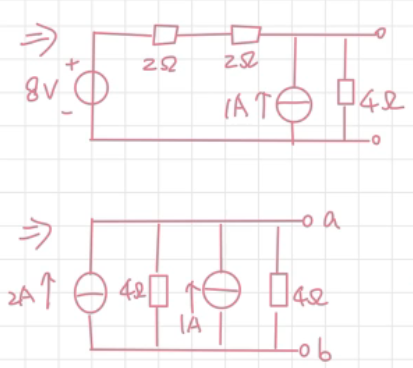 ⇒
+
8V
-
2Ω
2Ω
1A ↑
4Ω
⇒
2A ↑
4Ω
↑
1A
4Ω
a
b